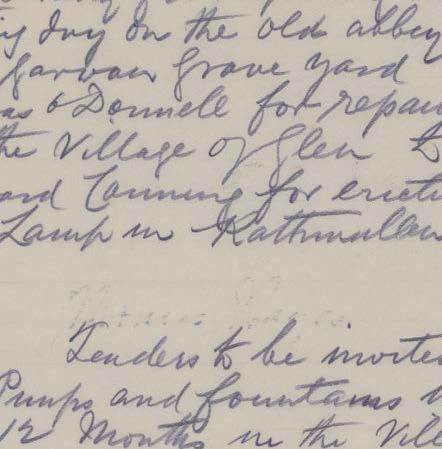 Ivy on the old abbey
Garvan Grave yard
as O'Donnell for repair
the Village of Glen
ard Canning for erecti
Lamp in Rathmullan
Tenders to be invited
Pumps and fountains
12 Months in the Vill